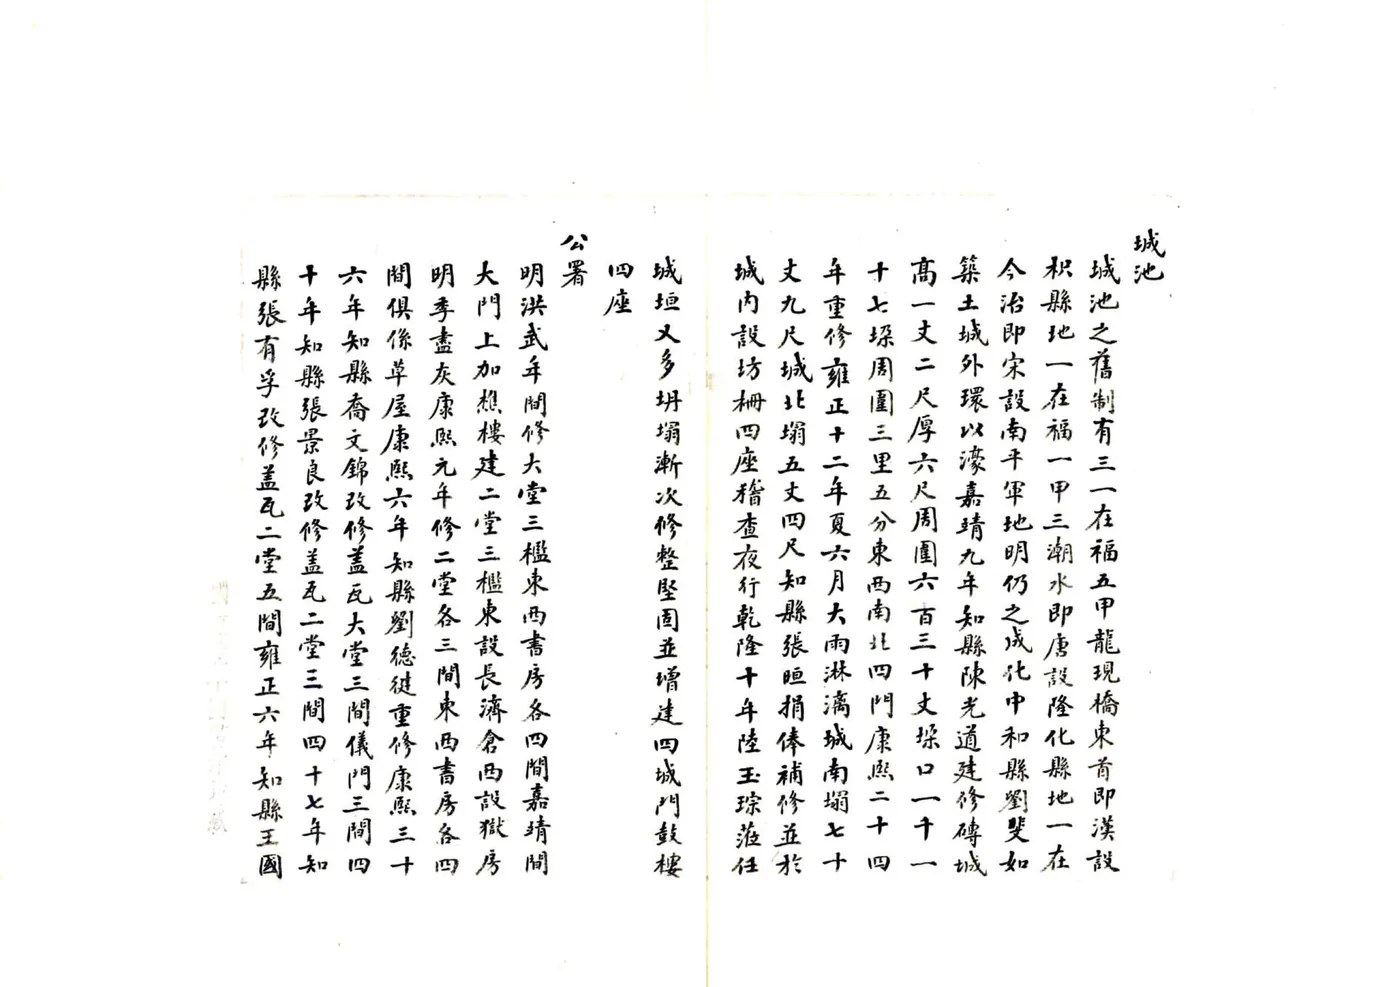 城池
城池之舊制有三一在福五甲龍現橋東首即漢設
枳縣地一在福一甲三潮水即唐設隆化縣地一在
今治即宋設南平軍地明仍之成化中和縣劉斐如
築土城外環以濠嘉靖九年知縣陳光道建修磚城
高一丈二尺厚六尺周圍六百三十丈垜口一千一
十七垜周圍三里五分東西南北四門康熙二十四
年重修雍正十二年夏六月大雨淋漓城南塌七十
丈九尺城北塌五丈四尺知縣張晅捐俸補修並於
城內設坊柵四座稽查夜行乾隆十年陸玉琮蒞任
城垣又多坍塌漸次修整堅固並增建四城門鼓樓
四座
公署
明洪武年間修大堂三檻東西書房各四間嘉靖間
大門上加樵樓建二堂三檻東設長濟倉西設獄房
明季盡灰康熙元年修二堂各三間東西書房各四
間俱係草屋康熙六年知縣劉德徤重修康熙三十
六年知縣喬文錦改修蓋瓦大堂三間儀門三間四
十年知縣張景良改修蓋瓦二堂三間四十七年知
縣張有孚改修蓋瓦二堂五間雍正六年知縣王國